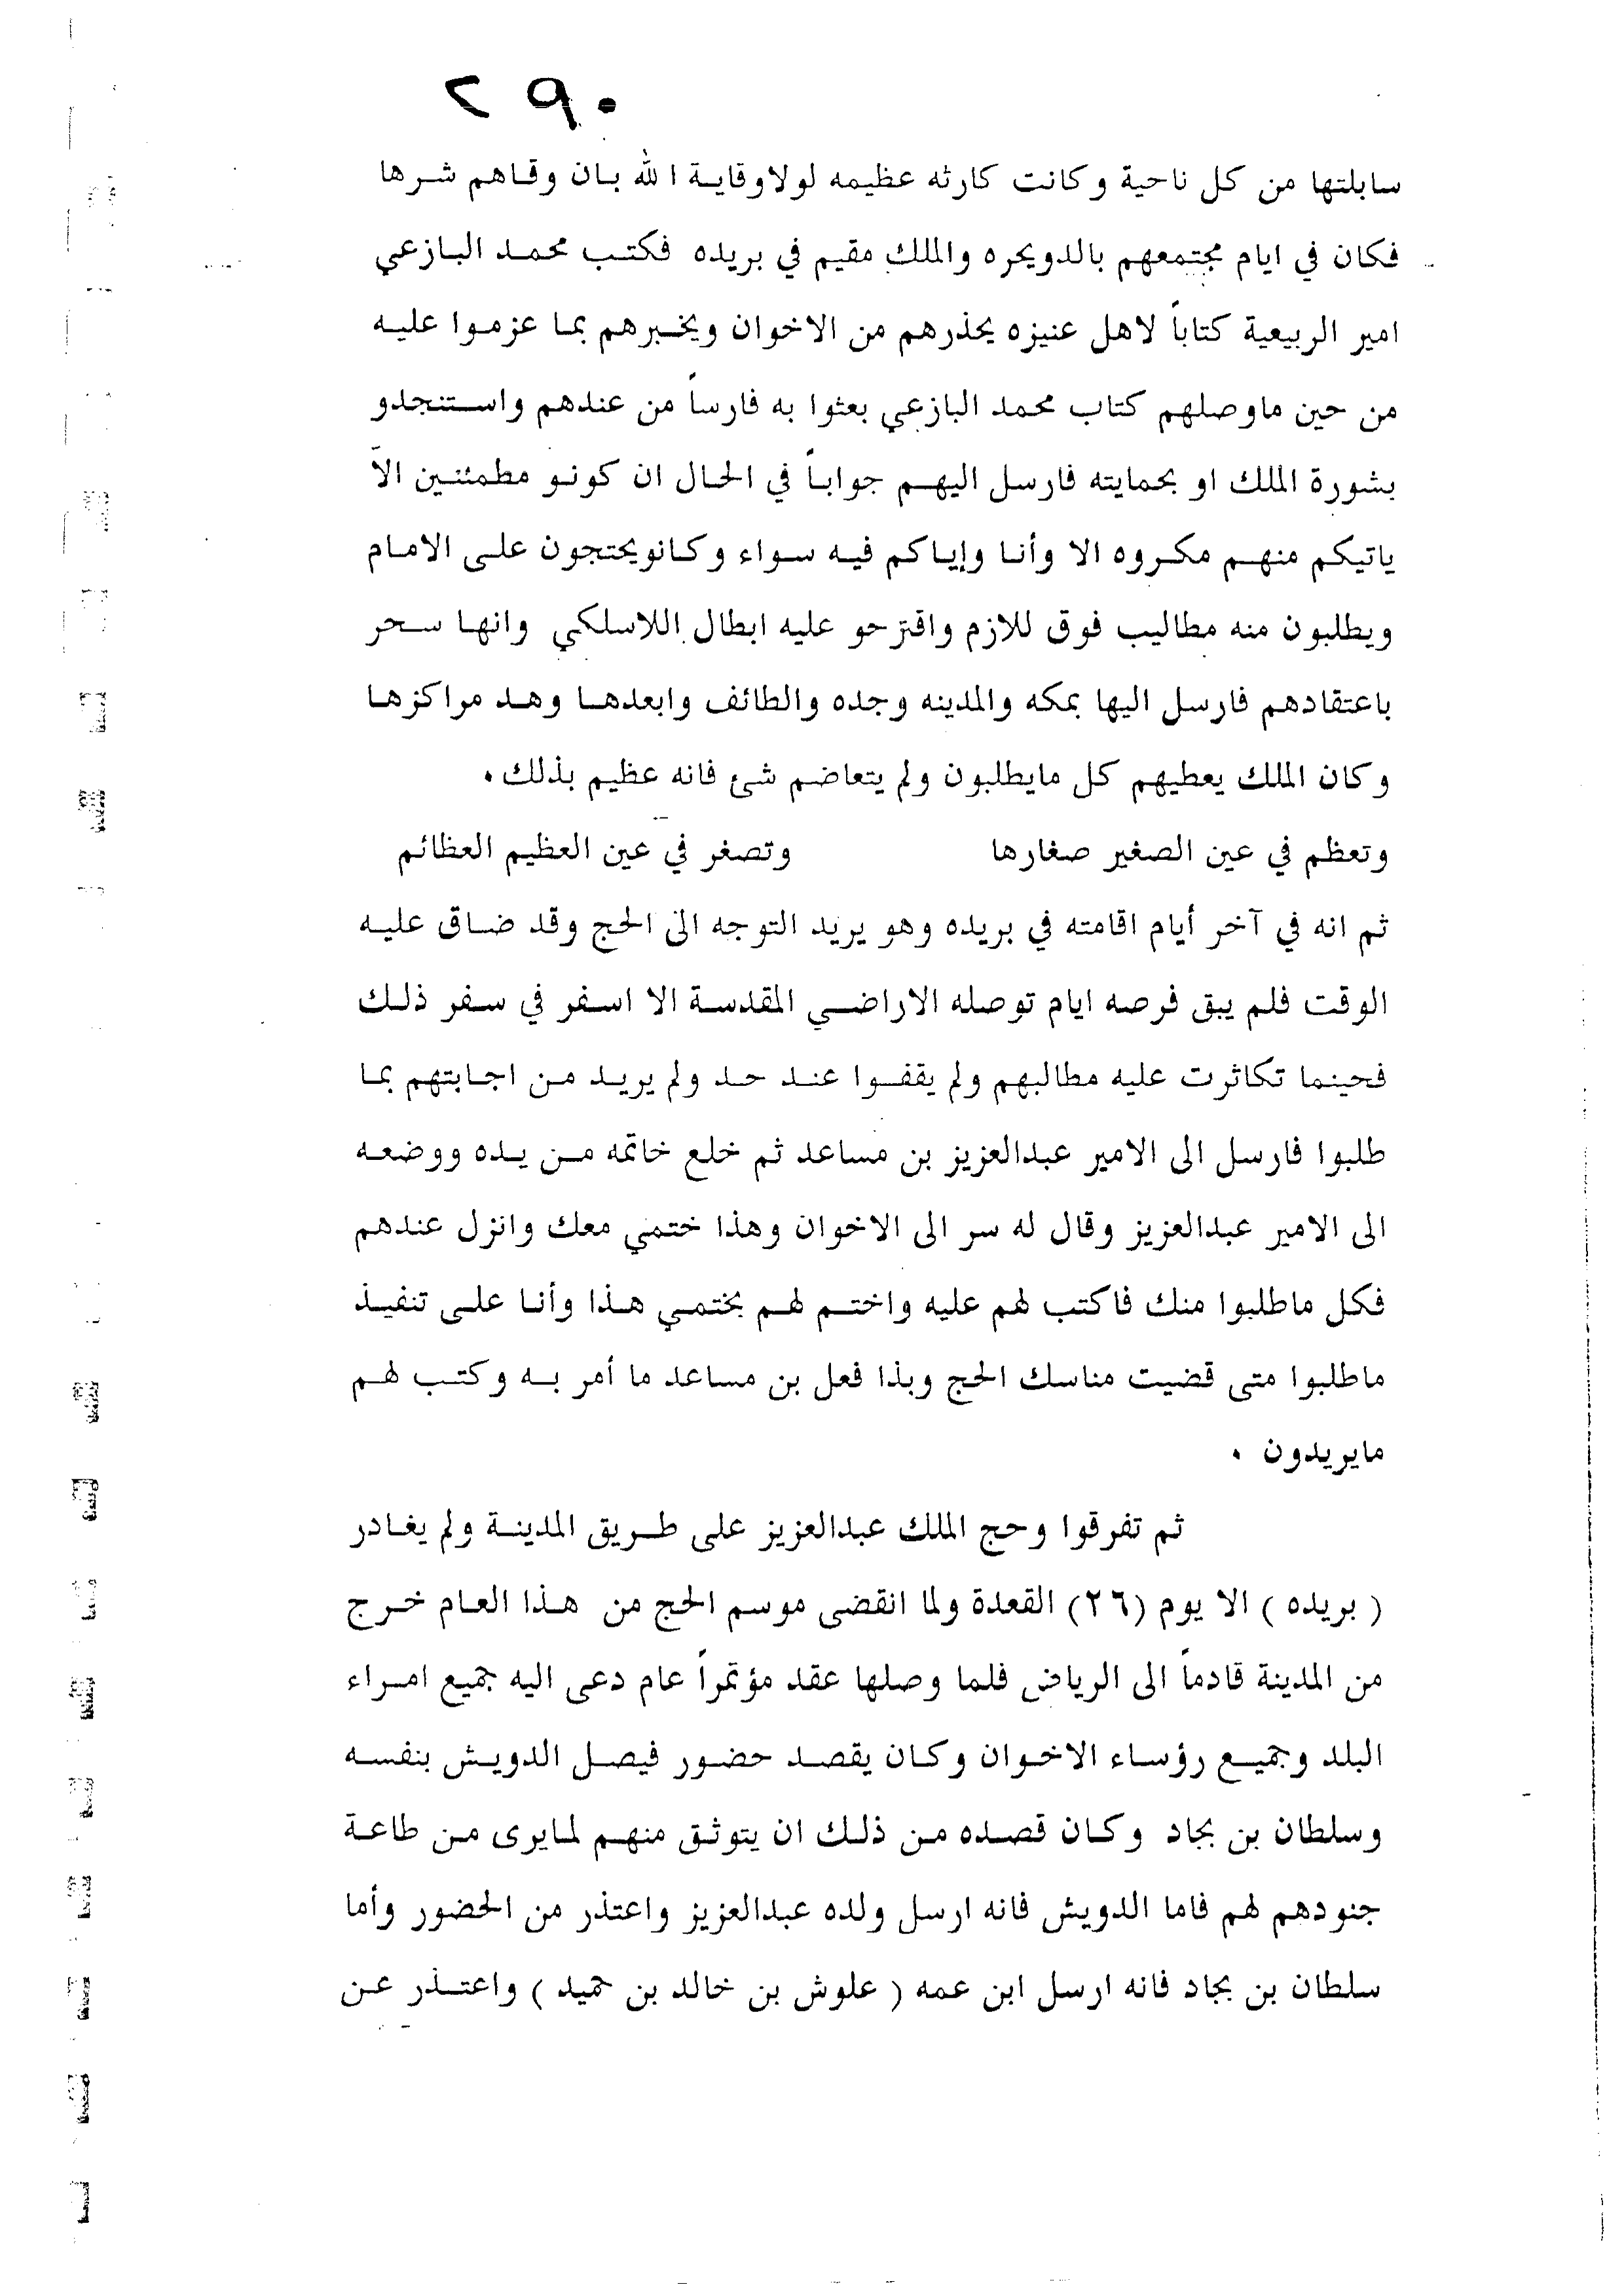 ٢٩٠
سابلتها من كل ناحية وكانت كارثه عظيمه لولاوقاية الله بان وقاهم شرها
فكان في ايام مجتمعهم بالدويحره والملك مقيم في بريده فكتب محمد البازعي
امير الربيعية كتاباً لاهل عنيزه يحذرهم من الاخوان ويخبرهم بما عزموا عليه
من حين ماوصلهم كتاب محمد البازعي بعثوا به فارساً من عندهم واستنجدو
بشورة الملك او بحمايته فارسل اليهم جواباً في الحال ان كونو مطمئنين الاّ
ياتيكم منهم مكروه الا وأنا وإياكم فيه سواء وكانويحتجون على الامام
ويطلبون منه مطاليب فوق للازم واقترحو عليه ابطال اللاسلكي وانها سحر
باعتقادهم فارسل اليها بمكه والمدينه وجده والطائف وابعدها وهد مراكزها
وكان الملك يعطيهم كل مايطلبون ولم يتعاضم شئ فانه عظيم بذلك .
وتعظم في عين الصغير صغارها وتصغر في عين العظيم العظائم
ثم انه في آخر أيام اقامته في بريده وهو يريد التوجه الى الحج وقد ضاق عليه
الوقت فلم يبق فرصه ايام توصله الاراضي المقدسة الا اسفر في سفر ذلك
فحينما تكاثرت عليه مطالبهم ولم يقفوا عند حد ولم يريد من اجابتهم بما
طلبوا فارسل الى الامير عبدالعزيز بن مساعد ثم خلع خاتمه من يده ووضعه
الى الامير عبدالعزيز وقال له سر الى الاخوان وهذا ختمي معك وانزل عندهم
فكل ماطلبوا منك فاكتب لهم عليه واختم لهم بختمي هذا وأنا على تنفيذ
ماطلبوا متى قضيت مناسك الحج وبذا فعل بن مساعد ما أمر به وكتب لهم
مايريدون .
ثم تفرقوا وحج الملك عبدالعزيز على طريق المدينة ولم يغادر
( بريده ) الا يوم (٢٦) القعدة ولما انقضى موسم الحج من هذا العام خرج
من المدينة قادماً الى الرياض فلما وصلها عقد مؤتمراً عام دعى اليه جميع امراء
البلد وجميع رؤساء الاخوان وكان يقصد حضور فيصل الدويش بنفسه
وسلطان بن بجاد وكان قصده من ذلك ان يتوثق منهم لمايرى من طاعة
جنودهم لهم فاما الدويش فانه ارسل ولده عبدالعزيز واعتذر من الحضور وأما
سلطان بن بجاد فانه ارسل ابن عمه ( علوش بن خالد بن حميد ) واعتذر عن